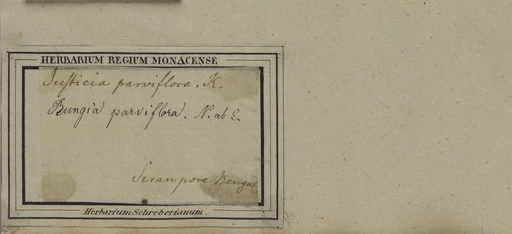 HERBARIUM REGIUM MONACENSE
Justicia parviflora. K.
Bungia parviflora. N. ab E.
Serampore Bengal
Herbarium Schreberianum.